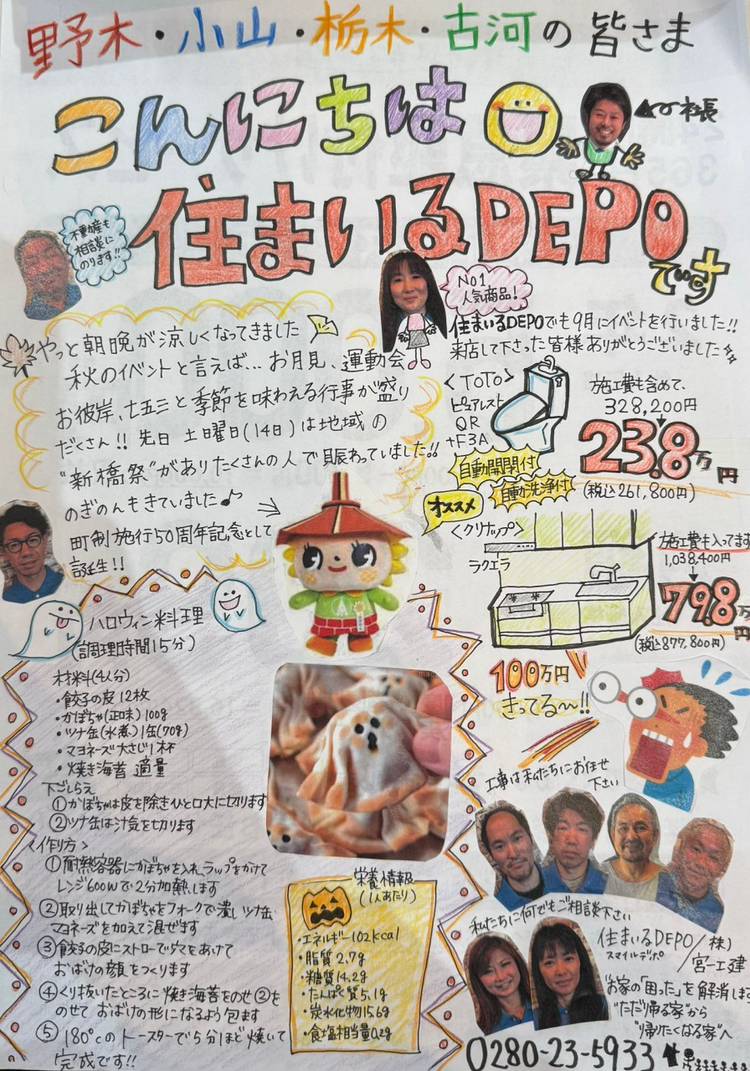 野木・小山・栃木・古河の皆さま
こんにちは
社長
住まいるDEPO
でぃす
不動産も
相談に
のります!!
No1
人気商品!
やっと朝晩が涼しくなってきました
秋のイベントと言えば… お月見、運動会
お彼岸、七五三と季節を味わえる行事が盛り
だくさん!! 先日 土曜日(14日)は地域の
"新橋祭"がありたくさんの人で賑わっていました!!
のぎのんもきていました♪
町制施行50周年記念として
誕生!!
住まいるDEPOでも9月にイベントを行いました!!
来店して下さった皆様ありがとうございました
<TOTO>
ピュアレスト
QR
+F3A
自動開閉付
自動洗浄付
施工費も含めて、
328,200円
23.8万円
(税込261,800円)
オススメ
<クリナップ>
ラクエラ
施工費も入ってます
1,038,400円
79.8万円
(税込877,800円)
100万円
きってる〜!!
ハロウィン料理
(調理時間15分)
材料(4人分)
・餃子の皮 12枚
・かぼちゃ(正味) 100g
・ツナ缶(水煮) 1缶(70g)
・マヨネーズ 大さじ1杯
・焼き海苔 適量
下ごしらえ
①かぼちゃは皮を除きひと口大に切ります
②ツナ缶は汁気を切ります
<作り方>
①耐熱容器にかぼちゃを入れ、ラップをかけて
レンジ600Wで2分加熱します
②取り出してかぼちゃをフォークで潰しツナ缶
マヨネーズを加えて混ぜます
③餃子の皮にストローで穴をあけて
おばけの顔をつくります
④くり抜いたところに焼き海苔をのせ②を
のせて おばけの形になるよう包ます
⑤180℃のトースターで5分ほど焼いて
完成です!!
栄養情報
(1人あたり)
・エネルギー102kcal
・脂質 2.7g
・糖質 14.2g
・たんぱく質 5.1g
・炭水化物 15.6g
・食塩相当量 0.2g
工事は私たちにお任せ
下さい
私たちに何でもご相談下さい
住まいるDEPO/(株)
スマイルデポ
宮一工建
"お家の「困った」を解消しま
"ただ帰る家"から
"帰りたくなる家"へ
0280-23-5933